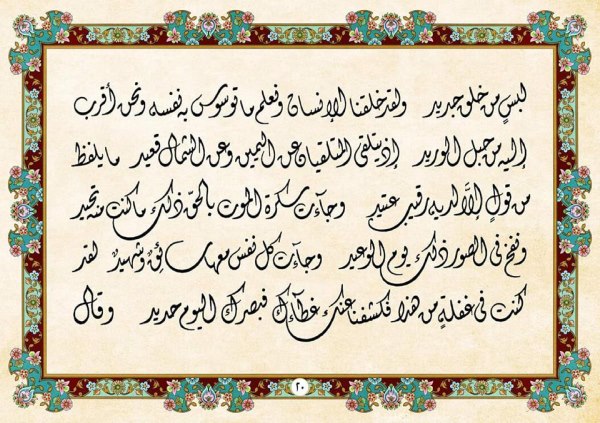 لبسٍ من خلق جديد ولقد خلقنا الإنسان ونعلم ما توسوس به نفسه ونحن أقرب
إليه من حبل الوريد إذ يتلقى المتلقيان عن اليمين وعن الشمال قعيد ما يلفظ
من قولٍ إلا لديه رقيب عتيد وجاءت سكرة الموت بالحق ذلك ما كنت منه تحيد
ونفخ في الصور ذلك يوم الوعيد وجاءت كل نفس معها سائقٌ وشهيدٌ لقد
كنت في غفلةٍ من هذا فكشفنا عنك غطآءك فبصرك اليوم حديد وقال
٢٠